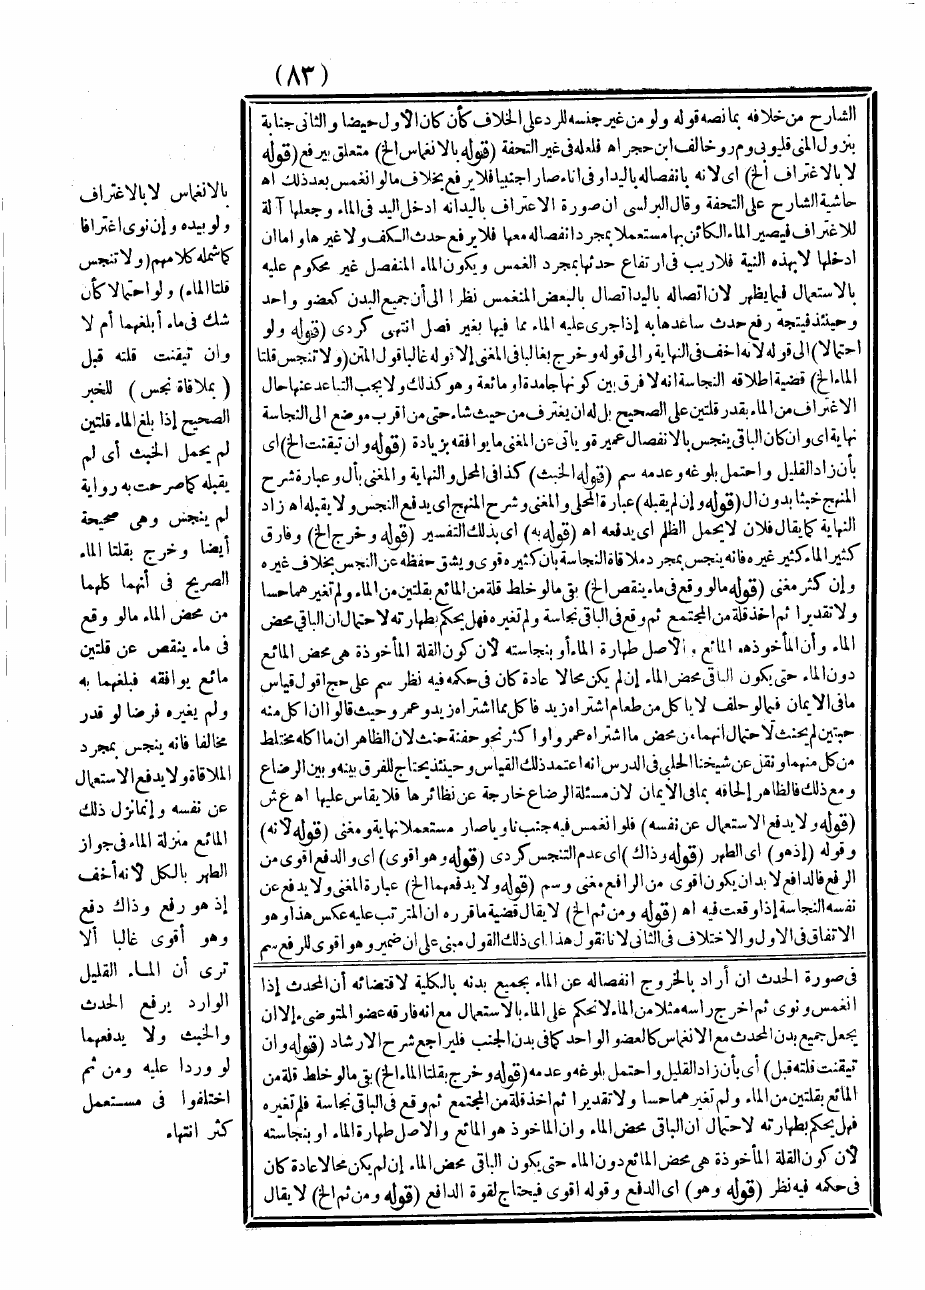 (٨٣)
الشارح من خلافه بما نصه قوله ولو من غير جنسه للرد على الخلاف كأن كان الاول حيضا والثانى جنابة
بنزول المنى قليوبى وم ر وخالف ابن حجر اه فلعله فى غير التحفة (قوله بالانغماس الخ) متعلق بيرفع (قوله
لا بالاغتراف الخ) اى لانه بانفصاله باليد او فى اناء صار اجنبيا فلا يرفع بخلاف ما لو انغمس بعد ذلك اه
حاشية الشارح على التحفة وقال البرلسى ان صورة الاغتراف باليد انه ادخل اليد فى الماء وجعلها آلة
للاغتراف فيصير الماء الكائن بها مستعملا بمجرد انفصاله معها فلا يرفع حدث الكف ولا غيرها واما ان
ادخلها لا بهذه النية فلا ريب فى ارتفاع حدثها بمجرد الغمس ويكون الماء المنفصل غير محكوم عليه
بالاستعمال فيما يظهر لان اتصاله باليد اتصال بالبعض المنغمس نظرا الى أن جميع البدن كعضو واحد
وحينئذ فيتجه رفع حدث ساعدها به إذا جرى عليه الماء مما فيها بغير فصل انتهى كردى (قوله ولو
احتمالا) الى قوله لانه اخف فى النهاية والى قوله وخرج بغالبا فى المغنى إلا قوله غالبا قول المتن (ولا تنجس قلتا
الماء الخ) قضية اطلاقه النجاسة انه لا فرق بين كونها جامدة او مائعة وهو كذلك ولا يجب التباعد عنها حال
الاغتراف من الماء بقدر قلتين على الصحيح بل له ان يغترف من حيث شاء حتى من اقرب موضع الى النجاسة
نهاية اى وان كان الباقى ينجس بالانفصال عميرة وياتى عن المغنى ما يوافقه بزيادة (قوله وان تيقنت الخ) اى
بأن زاد القليل واحتمل بلوغه وعدمه سم (قوله الخبث) كذا فى المحلى والنهاية والمغنى بأل وعبارة شرح
المنهج خبثا بدون ال (قوله وإن لم يقبله) عبارة المحلى والمغنى وشرح المنهج اى يدفع النجس ولا يقبله اه زاد
النهاية كما يقال فلان لا يحمل الظلم اى يدفعه اه (قوله به) اى بذلك التفسير (قوله وخرج الخ) وفارق
كثير الماء كثير غيره فانه ينجس بمجرد ملاقاة النجاسة بان كثيره قوى ويشق حفظه عن النجس بخلاف غيره
وإن كثر مغنى (قوله ما لو وقع فى ماء ينقص الخ) بقى ما لو خلط قلة من المائع بقلتين من الماء ولم تغيرهما حسا
ولا تقديرا ثم اخذ قلة من المجتمع ثم وقع فى الباقى نجاسة ولم تغيره فهل يحكم بطهارته لاحتمال ان الباقى محض
الماء وأن المأخوذ هو المائع والاصل طهارة الماء أو بنجاسته لأن كون القلة المأخوذة هى محض المائع
دون الماء حتى يكون الباقى محض الماء إن لم يكن محالا عادة كان فى حكمه فيه نظر سم على حج اقول قياس
ما فى الايمان فيما لو حلف لا ياكل من طعام اشتراه زيد فاكل مما اشتراه زيد وعمرو حيث قالوا ان اكل منه
حبتين لم يحنث لاحتمال انهما من محض ما اشتراه عمرو او اكثر نحو حفنة حنث لان الظاهر ان ما اكله مختلط
من كل منهما ونقل عن شيخنا الحلبى فى الدرس انه اعتمد ذلك القياس وحينئذ يحتاج للفرق بينه وبين الرضاع
ومع ذلك فالظاهر إلحاقه بما فى الايمان لان مسئلة الرضاع خارجة عن نظائرها فلا يقاس عليها اه ع ش
(قوله ولا يدفع الاستعمال عن نفسه) فلو انغمس فيه جنب ناويا صار مستعملا نهاية ومغنى (قوله لانه)
وقوله (إذ هو) اى الطهر (قوله وذاك) اى عدم التنجس كردى (قوله وهو اقوى) اى والدفع اقوى من
الرفع فالدافع لا بد ان يكون اقوى من الرافع مغنى وسم (قوله ولا يدفعهما الخ) عبارة المغنى ولا يدفع عن
نفسه النجاسة إذا وقعت فيه اه (قوله ومن ثم الخ) لا يقال قضية ما قرره ان المترتب عليه عكس هذا وهو
الاتفاق فى الاول والاختلاف فى الثانى لانا نقول هذا اى ذلك القول مبنى على ان ضمير وهو اقوى للرفع سم
فى صورة الحدث ان أراد بالخروج انفصاله عن الماء بجميع بدنه بالكلية لاقتضائه أن المحدث إذا
انغمس ونوى ثم اخرج راسه مثلا من الماء لا نحكم على الماء بالاستعمال مع انه فارقه عضو المتوضىء إلا ان
يجعل جميع بدن المحدث مع الانغماس كالعضو الواحد كما فى بدن الجنب فليراجع شرح الارشاد (قوله وان
تيقنت قلته قبل) أى بأن زاد القليل واحتمل بلوغه وعدمه (قوله وخرج بقلتا الماء الخ) بقى ما لو خلط قلة من
المائع بقلتين من الماء ولم تغيرهما حسا ولا تقديرا ثم اخذ قلة من المجتمع ثم وقع فى الباقى نجاسة فلم تغيره
فهل يحكم بطهارته لاحتمال ان الباقى محض الماء وان الماخوذ هو المائع والاصل طهارة الماء او بنجاسته
لأن كون القلة المأخوذة هى محض المائع دون الماء حتى يكون الباقى محض الماء إن لم يكن محالا عادة كان
فى حكمه فيه نظر (قوله وهو) اى الدفع وقوله اقوى فيحتاج لقوة الدافع (قوله ومن ثم الخ) لا يقال
بالانغماس لا بالاغتراف
ولو بيده وإن نوى اغترافا
كما شمله كلامهم (ولا تنجس
قلتا الماء) ولو احتمالا كأن
شك فى ماء أبلغهما أم لا
وان تيقنت قلته قبل
(بملاقاة نجس) للخبر
الصحيح إذا بلغ الماء قلتين
لم يحمل الخبث أى لم
يقبله كما صرحت به رواية
لم ينجس وهى صحيحة
أيضا وخرج بقلتا الماء
الصريح فى أنهما كلهما
من محض الماء ما لو وقع
فى ماء ينقص عن قلتين
مائع يوافقه فبلغهما به
ولم يغيره فرضا لو قدر
مخالفا فانه ينجس بمجرد
الملاقاة ولا يدفع الاستعمال
عن نفسه وإنما نزل ذلك
المائع منزلة الماء فى جواز
الطهر بالكل لانه أخف
إذ هو رفع وذاك دفع
وهو أقوى غالبا ألا
ترى أن الماء القليل
الوارد يرفع الحدث
والخبث ولا يدفعهما
لو وردا عليه ومن ثم
اختلفوا فى مستعمل
كثر انتهاء